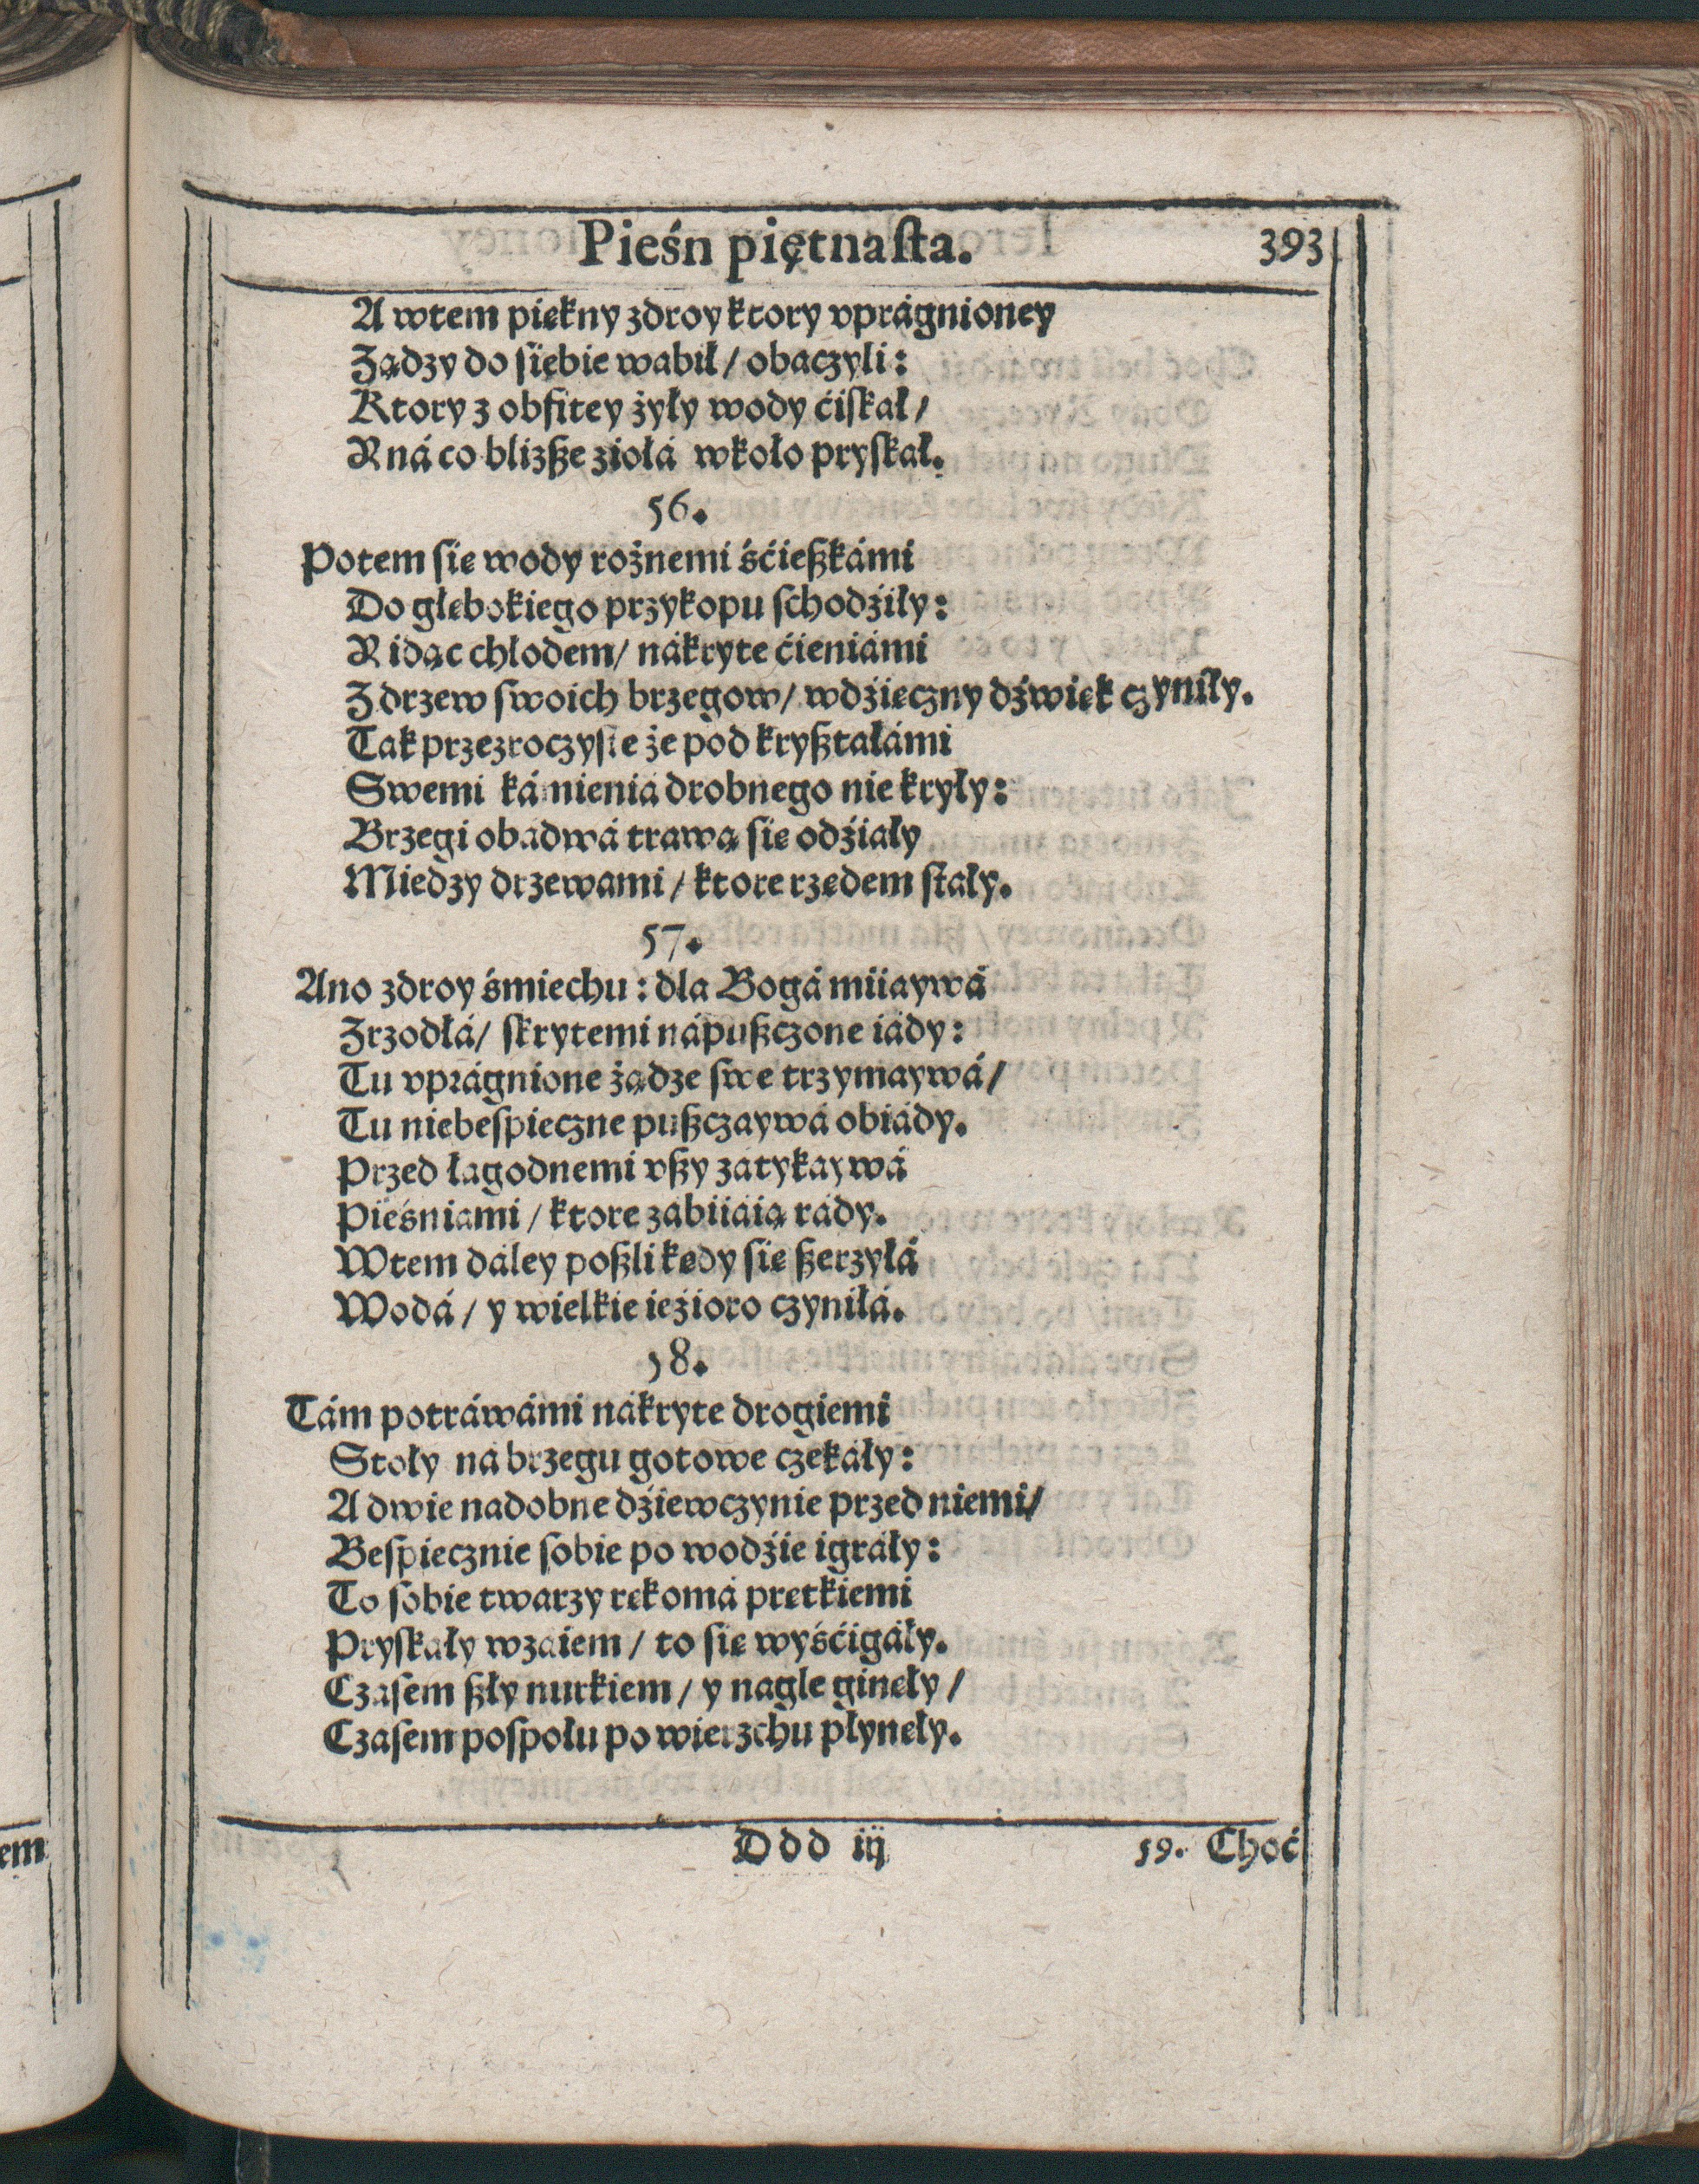 Pieśń piętnaſta. 393
A wtem piękny zdroy ktory vprágnioney
Ządzy do ſiebie wabił / obaczyli:
Ktory z obfitey żyły wody ćiſkał /
Y ná co bliżße ziołá wkoło pryſkał.
56.
Potem ſię wody rożnemi śćießkámi
Do głębokiego przykopu ſchodźiły:
Y idąc chłodem / nákryte ćieniámi
Z drzew ſwoich brzegow / wdźięczny dźwięk czyniły.
Tak przezroczyſte że pod kryßtałámi
Swemi kámienia drobnego nie kryły:
Brzegi obádwá trawą ſię odźiały
Miedzy drzewami / ktore rzędem ſtały.
57.
Ano zdroy śmiechu: dla Bogá miiaywá
Zrzodłá / ſkrytemi nápußczone iády:
Tu vprágnione żądze ſwe trzymaywá /
Tu niebeſpieczne pußczaywá obiády.
Przed łagodnemi vßy zátykaywá
Pieśniami / ktore zábiiáią rády.
Wtem dáley poßli kędy ſię ßerzyłá
Wodá / y wielkie ieźioro czyniłá.
58.
Tám potráwámi nákryte drogiemi
Stoły ná brzegu gotowe czekáły:
A dwie nadobne dźiewczynie przed niemi /
Beſpiecznie ſobie po wodźie igráły:
To ſobie twarzy rękomá prętkiemi
Pryſkały wzaiem / to ſię wyśćigáły.
Czaſem ßły nurkiem / y nagle ginęły /
Czaſem poſpołu po wierzchu płynęły.
Ddd iij 59. Choć
em